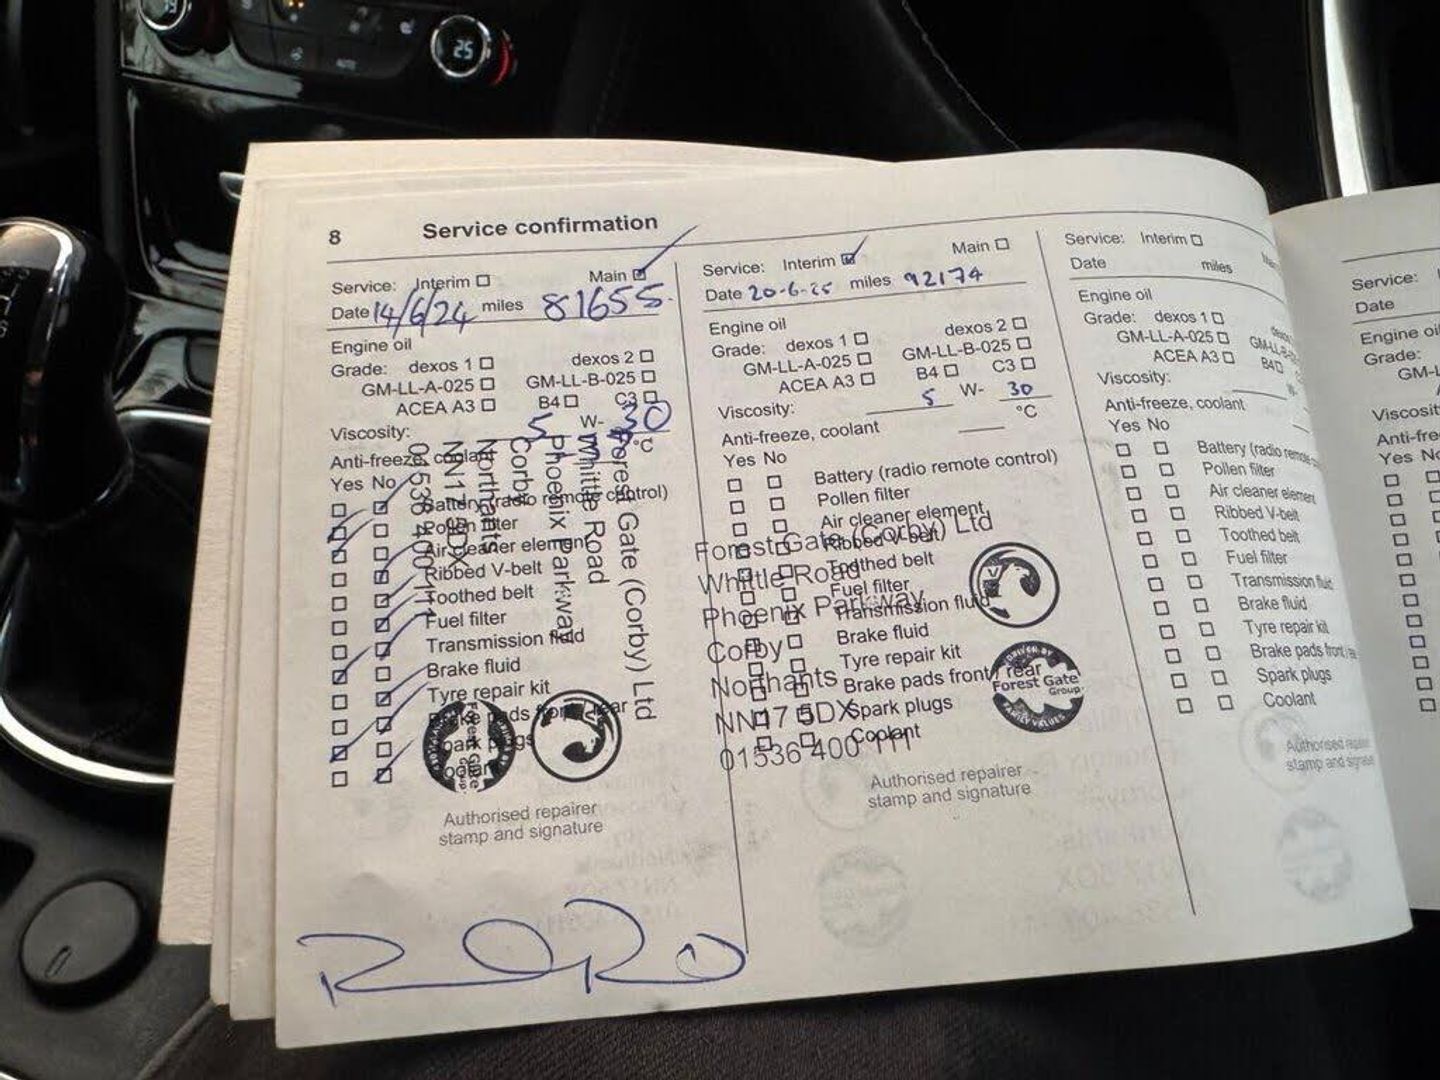 25
AUTO
8 Service confirmation
Service: Interim Main
Date 14/6/24 miles 81655
Engine oil
Grade: dexos 1 dexos 2
GM-LL-A-025 GM-LL-B-025
ACEA A3 B4 C3
Viscosity: 5 W- 30
Anti-freeze, coolant °C
Yes No
Battery (radio remote control)
Pollen filter
Air cleaner element
Ribbed V-belt
Toothed belt
Fuel filter
Transmission fluid
Brake fluid
Tyre repair kit
Brake pads front / rear
Spark plugs
Coolant
Forest Gate (Corby) Ltd
Whittle Road
Phoenix Parkway
Corby
Northants
NN17 5DX
01536 400 111
Forest Gate
Group
Authorised repairer
stamp and signature
Service: Interim Main
Date 20-6-25 miles 92174
Engine oil
Grade: dexos 1 dexos 2
GM-LL-A-025 GM-LL-B-025
ACEA A3 B4 C3
Viscosity: 5 W- 30
Anti-freeze, coolant °C
Yes No
Battery (radio remote control)
Pollen filter
Air cleaner element
Ribbed V-belt
Toothed belt
Fuel filter
Transmission fluid
Brake fluid
Tyre repair kit
Brake pads front / rear
Spark plugs
Coolant
Forest Gate (Corby) Ltd
Whittle Road
Phoenix Parkway
Corby
Northants
NN17 5DX
01536 400 111
DRIVEN BY
Forest Gate
Group
FAMILY VALUES
Authorised repairer
stamp and signature
Service: Interim
Date miles
Engine oil
Grade: dexos 1
GM-LL-A-025
ACEA A3 B4
Viscosity: W-
Anti-freeze, coolant
Yes No
Battery (radio remote
Pollen filter
Air cleaner element
Ribbed V-belt
Toothed belt
Fuel filter
Transmission fluid
Brake fluid
Tyre repair kit
Brake pads front /
Spark plugs
Coolant
Authorised repairer
stamp and signature
Service:
Date
Engine oil
Grade:
GM-L
ACE
Viscosit
Anti-fre
Yes No